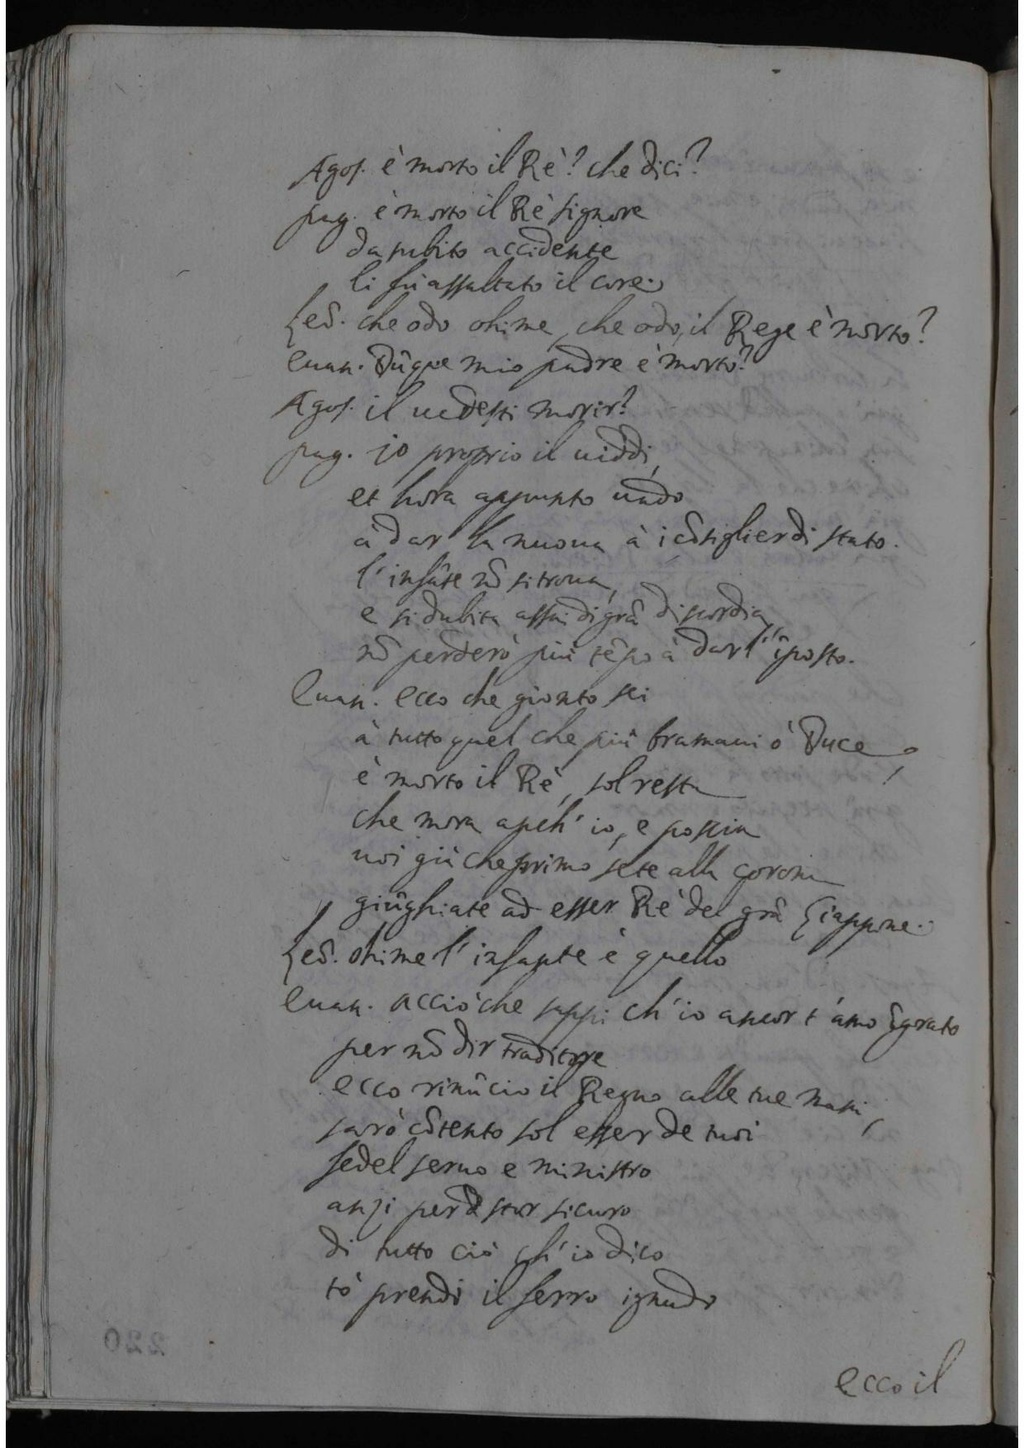 Agos. è morto il Rè? che dici?
pag. è morto il Rè signore
da subito accidente
li fù assaltato il core.
Leō. che odo ohime, che odo, il Rege è morto?
Euan. Dūque mio padre è morto?
Agos. il uedesti morir?
pag. io proprio il uiddi,
et hora appunto uado
à dar la nuoua à i cōsiglier di stato.
l'infāte nō si troua,
e si dubita assai di grā discordia,
nō perderò più tēpo à darl'
Euan. Ecco che gionto sei
à tutto quel che più bramaui ò Duce,
è morto il Rè, sol resta
che mora anch'io, e poscia
uoi già che primo sete alla corona
giūghiate ad esser Rè del grā Giappone.
Leō. ohime l'infante è quello
Euan. acciò che sappi ch'io ancor t'amo īgrato
per nō dir traditore
ecco rinūcio il Regno alle tue mani,
sarò cōtento sol esser de tuoi
fedel seruo e ministro
anzi per star sicuro
di tutto ciò ch'io dico
tò prendi il ferro ignudo
ecco il
220